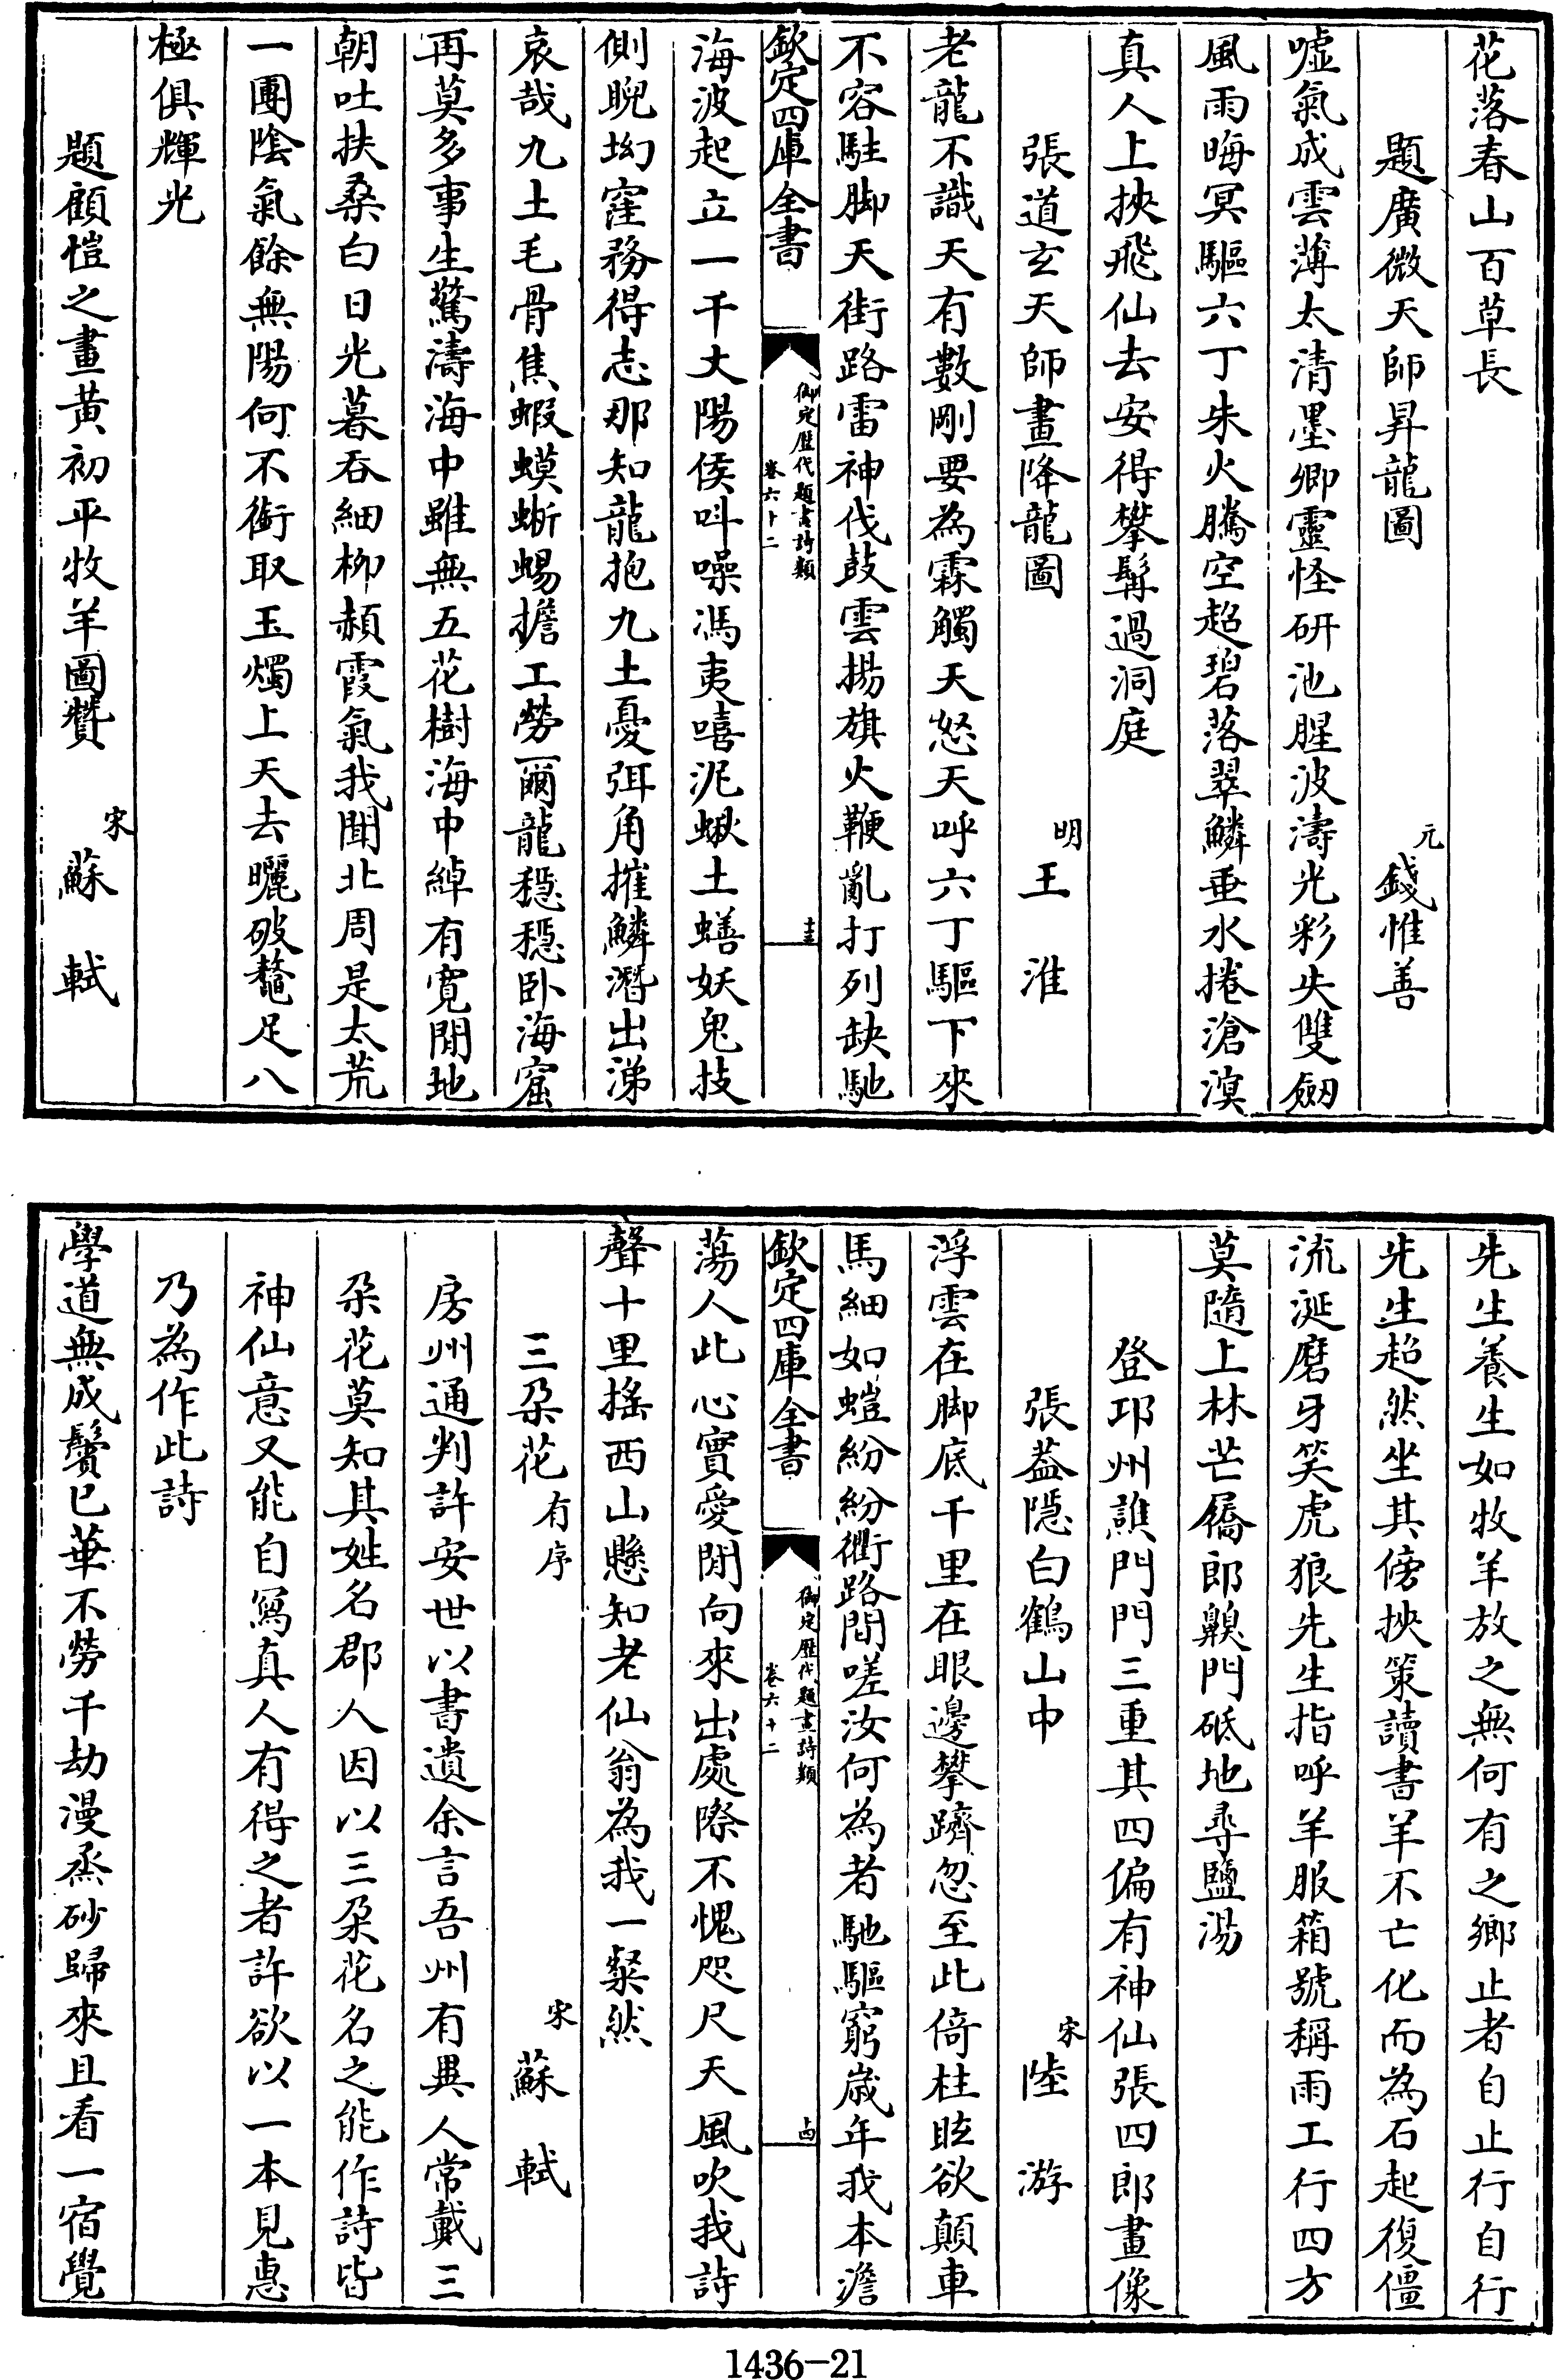 花落春山百草長
題廣微天師昇龍圖 元 錢惟善
噓氣成雲薄太清墨卿靈怪研池腥波濤光彩失雙劒
風雨晦冥驅六丁朱火騰空超碧落翠鱗垂水捲滄溟
真人上挾飛仙去安得攀髯過洞庭
張道玄天師畫降龍圖 明 王淮
老龍不識天有數剛要為霖觸天怒天呼六丁驅下來
不容駐脚天街路雷神伐鼓雲揚旗火鞭亂打列缺馳
欽定四庫全書
御定歴代題畫詩類
卷六十二
十三
海波起立一千丈陽侯呌噪馮夷嘻泥蝤土蟮妖鬼技
側睨坳窪務得志那知龍抱九土憂弭角摧鱗潛出涕
哀哉九土毛骨焦蝦蟆蜥蜴擔工勞爾龍穏穏卧海窟
再莫多事生驚濤海中雖無五花樹海中綽有寛閒地
朝吐扶桑白日光暮吞細柳赬霞氣我聞北周是太荒
一團陰氣餘無陽何不銜取玉燭上天去曬破鼇足八
極俱輝光
題顧愷之畫黃初平牧羊圖贊 宋 蘇軾
先生養生如牧羊放之無何有之鄉止者自止行自行
先生超然坐其傍挾策讀書羊不亡化而為石起復僵
流涎磨牙笑虎狼先生指呼羊服箱號稱雨工行四方
莫隨上林芒屩郎䑕門砥地尋鹽湯
登卭州譙門門三重其四偏有神仙張四郎畫像
張葢隱白鶴山中 宋 陸游
浮雲在脚底千里在眼邊攀躋忽至此倚柱眩欲顛車
馬細如螘紛紛衢路間嗟汝何為者馳驅窮嵗年我本澹
欽定四庫全書
御定歴代題畫詩類
卷六十二
十四
蕩人此心實愛閒向來出處際不愧咫尺天風吹我詩
聲十里摇西山懸知老仙翁為我一粲然
三朵花有序 宋 蘇軾
房州通判許安世以書遺余言吾州有異人常戴三
朶花莫知其姓名郡人因以三朶花名之能作詩皆
神仙意又能自寫真人有得之者許欲以一本見惠
乃為作此詩
學道無成鬢已華不勞千劫漫烝砂歸來且看一宿覺
1436-21